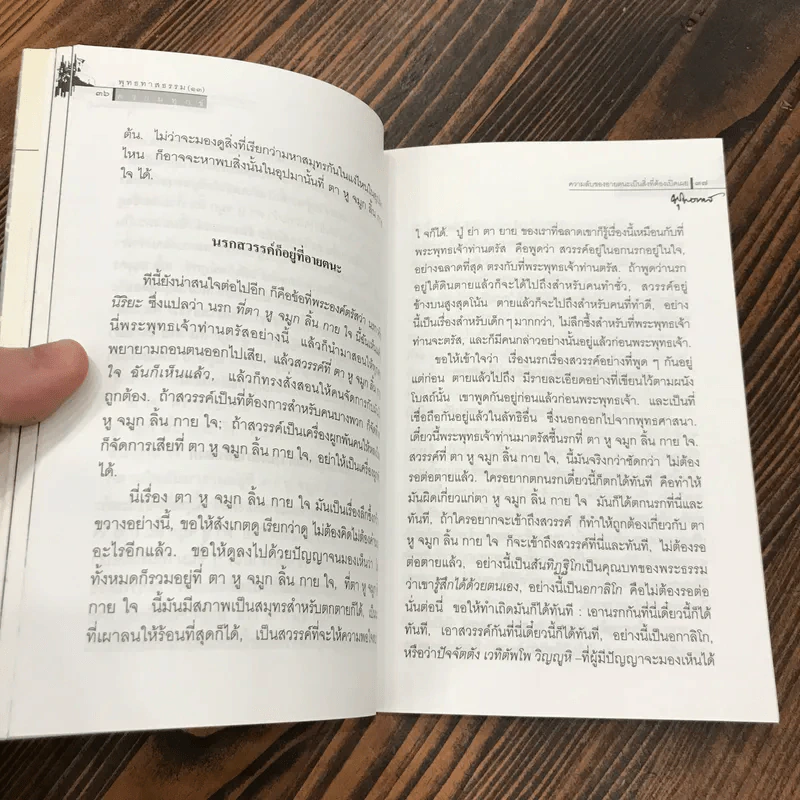 พุทธทาสธรรม (๑๓)
๓๖
ต้น. ไม่ว่าจะมองดูสิ่งที่เรียกว่ามหาสมุทรกันในแง่ไหนในมุม
ไหน ก็อาจจะหาพบสิ่งนั้นในอุปมานั้นที่ ตา หู จมูก ลิ้น กาย
ใจ ได้.
นรกสวรรค์ก็อยู่ที่อายตนะ
ทีนี้ยังน่าสนใจต่อไปอีก ก็คือข้อที่พระองค์ตรัสว่า
นิริยะ ซึ่งแปลว่า นรก ที่ตา หู จมูก ลิ้น กาย ใจ นี้ฉันเห็นแล้ว
นี่พระพุทธเจ้าท่านตรัสอย่างนี้ แล้วก็นำมาสอนให้
พยายามถอนตนออกไปเสีย, แล้วสวรรค์ที่ ตา หู จมูก ลิ้น กาย
ใจ ฉันก็เห็นแล้ว, แล้วก็ทรงสั่งสอนให้คนจัดการกับ
ถูกต้อง. ถ้าสวรรค์เป็นที่ต้องการสำหรับคนบางพวก ก็จัด
หู จมูก ลิ้น กาย ใจ; ถ้าสวรรค์เป็นเครื่องผูกพันคนให้
ก็จัดการเสียที่ ตา หู จมูก ลิ้น กาย ใจ, อย่าให้เป็นเครื่องผูกพัน
ได้.
นี่เรื่อง ตา หู จมูก ลิ้น กาย ใจ มันเป็นเรื่องลึกซึ้ง
ขวางอย่างนี้, ขอให้สังเกตดู เรียกว่าดู ไม่ต้องคิดไม่ต้อง
อะไรอีกแล้ว. ขอให้ดูลงไปด้วยปัญญาจนมองเห็นว่า
ทั้งหมดก็รวมอยู่ที่ ตา หู จมูก ลิ้น กาย ใจ, ที่ตา หู จมูก
กาย ใจ นี้มันมีสภาพเป็นสมุทรสำหรับตกตายก็ได้,
ที่เผาลนให้ร้อนที่สุดก็ได้, เป็นสวรรค์ที่จะให้ความพอใจ
ความลับของอายตนะเป็นสิ่งที่ต้องเปิดเผย ๓๗
ใจก็ได้. ปู่ ย่า ตา ยาย ของเราที่ฉลาดเขาก็รู้เรื่องนี้เหมือนกับที่
พระพุทธเจ้าท่านตรัส คือพูดว่า สวรรค์อยู่ในอกนรกอยู่ในใจ,
อย่างฉลาดที่สุด ตรงกับที่พระพุทธเจ้าท่านตรัส. ถ้าพูดว่านรก
อยู่ใต้ดินตายแล้วก็จะได้ไปถึงสำหรับคนทำชั่ว, สวรรค์อยู่
ข้างบนสูงสุดโน้น ตายแล้วก็จะไปถึงสำหรับคนที่ทำดี, อย่าง
นี้เป็นเรื่องสำหรับเด็กๆมากกว่า, ไม่ลึกซึ้งสำหรับที่พระพุทธเจ้า
ท่านจะตรัส, และก็มีคนกล่าวอย่างนั้นอยู่แล้วก่อนพระพุทธเจ้า.
ขอให้เข้าใจว่า เรื่องนรกเรื่องสวรรค์อย่างที่พูด ๆ กันอยู่
แต่ก่อน ตายแล้วไปถึง มีรายละเอียดอย่างที่เขียนไว้ตามผนัง
โบสถ์นั้น, เขาพูดกันอยู่ก่อนแล้วก่อนพระพุทธเจ้า. และเป็นที่
เชื่อถือกันอยู่แล้วในลัทธิอื่น ซึ่งนอกออกไปจากพุทธศาสนา.
เดี๋ยวนี้พระพุทธเจ้าท่านมาตรัสชี้นรกที่ ตา หู จมูก ลิ้น กาย ใจ.
สวรรค์ที่ ตา หู จมูก ลิ้น กาย ใจ, นี้มันจริงกว่าชัดกว่า ไม่ต้อง
รอต่อตายแล้ว. ใครอยากตกนรกเดี๋ยวนี้ก็ตกได้ทันที คือทำให้
มันผิดเกี่ยวแก่ตา หู จมูก ลิ้น กาย ใจ มันก็ได้ตกนรกที่นี่และ
ทันที, ถ้าใครอยากจะเข้าถึงสวรรค์ ก็ทำให้ถูกต้องเกี่ยวกับ ตา
หู จมูก ลิ้น กาย ใจ ก็จะเข้าถึงสวรรค์ที่นี่และทันที, ไม่ต้องรอ
ต่อตายแล้ว, อย่างนี้เป็นสันทิฏฐิโกเป็นคุณบทของพระธรรม
ว่าเขารู้สึกได้ด้วยตนเอง, อย่างนี้เป็นอกาลิโก คือไม่ต้องรอต่อ
นั่นต่อนี่ ขอให้ทำเถิดมันก็ได้ทันที : เอานรกกันที่นี่เดี๋ยวนี้ก็ได้
ทันที, เอาสวรรค์กันที่นี่เดี๋ยวนี้ก็ได้ทันที, อย่างนี้เป็นอกาลิโก,
หรือว่าปัจจัตตัง เวทิตัพโพ วิญญูหิ –ที่ผู้มีปัญญาจะมองเห็นได้